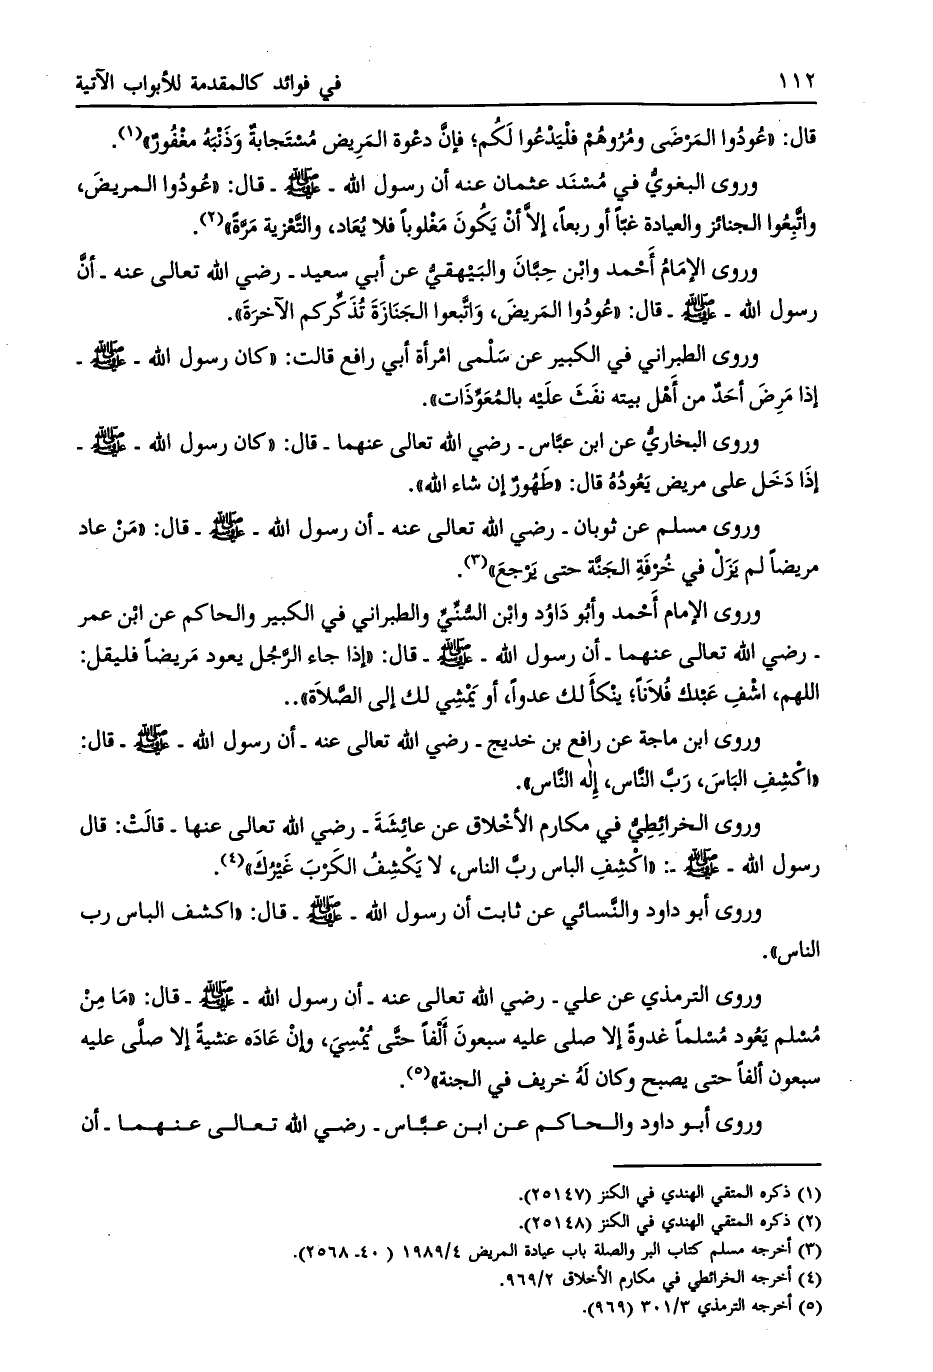 ١١٢ في فوائد كالمقدمة للأبواب الآتية
قال: «عُودُوا المَرْضَى ومُرُوهُمْ فلْيَدْعُوا لَكُم؛ فإنَّ دعْوة المَرِيض مُسْتَجابةٌ وَذَنْبَهُ مغْفُورٌ»(١).
وروى البغويُّ في مُسْنَد عثمان عنه أن رسول الله - ﷺ - قال: «عُودُوا المريضَ،
واتَّبِعُوا الجنائز والعيادة غبّاً أو ربعاً، إلاَّ أنْ يَكُونَ مَغْلوباً فلا يُعَاد، والتَّعْزية مَرَّةً»(٢).
وروى الإمَامُ أَحْمد وابْن حِبَّانَ والبَيْهقيُّ عن أبي سعيد - رضي الله تعالى عنه - أنَّ
رسول الله - ﷺ - قال: «عُودُوا المَرِيضَ، وَاتَّبعوا الجَنَازَةَ تُذَكِّركم الآخرَةَ».
وروى الطبراني في الكبير عن سَلْمى امْرأة أبي رافع قالت: «كان رسول الله - ﷺ -
إذا مَرِضَ أحَدٌ من أَهْل بيته نفَثَ علَيْه بالمُعَوِّذَات».
وروى البخاريُّ عن ابن عبَّاس - رضي الله تعالى عنهما - قال: «كان رسول الله - ﷺ -
إذَا دَخَل على مريض يَعُودُهُ قال: «طَهُورٌ إن شاء الله».
وروى مسلم عن ثوبان - رضي الله تعالى عنه - أن رسول الله - ﷺ - قال: «مَنْ عاد
مريضاً لم يَزَلْ في خُرْفَةِ الجنَّة حتى يَرْجعَ»(٣).
وروى الإمام أَحْمد وأبُو دَاوُد وابْن السُّنِّيِّ والطبراني في الكبير والحاكم عن ابْن عمر
- رضي الله تعالى عنهما - أن رسول الله - ﷺ - قال: «إذا جاء الرَّجُل يعود مَريضاً فليقل:
اللهم، اشْفِ عَبْدك فُلاَناً؛ ينْكأَ لك عدواً، أو يَمْشِي لك إلى الصَّلاَة»..
وروى ابن ماجة عن رافع بن خديج - رضي الله تعالى عنه - أن رسول الله - ﷺ - قال:
«اكْشِفِ البَاسَ، رَبَّ النَّاس، إِلٰه النَّاس».
وروى الخرائِطِيُّ في مكارم الأخْلاق عن عائِشَةَ - رضي الله تعالى عنها - قالَتْ: قال
رسول الله - ﷺ -: «اكْشِفِ الباس ربَّ الناس، لا يَكْشِفُ الكَرْبَ غَيْرُكَ»(٤).
وروى أبو داود والنَّسائي عن ثابت أن رسول الله - ﷺ - قال: «اكشف الباس رب
الناس».
وروى الترمذي عن علي - رضي الله تعالى عنه - أن رسول الله - ﷺ - قال: «مَا مِنْ
مُسْلم يَعُود مُسْلماً غدوةً إلا صلى عليه سبعونَ أَلْفاً حتَّى يُمْسِيَ، وإنْ عَادَه عشيةً إلا صلَّى عليه
سبعون ألفاً حتى يصبح وكان لَهُ خريف في الجنة»(٥).
وروى أبو داود والحاكم عن ابن عبَّاس - رضي الله تعالى عنهما - أن
(١) ذكره المتقي الهندي في الكنز (٢٥١٤٧).
(٢) ذكره المتقي الهندي في الكنز (٢٥١٤٨).
(٣) أخرجه مسلم كتاب البر والصلة باب عيادة المريض ١٩٨٩/٤ (٤٠ - ٢٥٦٨).
(٤) أخرجه الخرائطي في مكارم الأخلاق ٩٦٩/٢.
(٥) أخرجه الترمذي ٣٠١/٣ (٩٦٩).